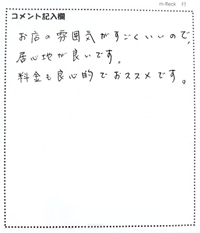 m-flock 11
コメント記入欄
お店の雰囲気がすごくいいので、
居心地が良いです。
料金も良心的でおススメです。